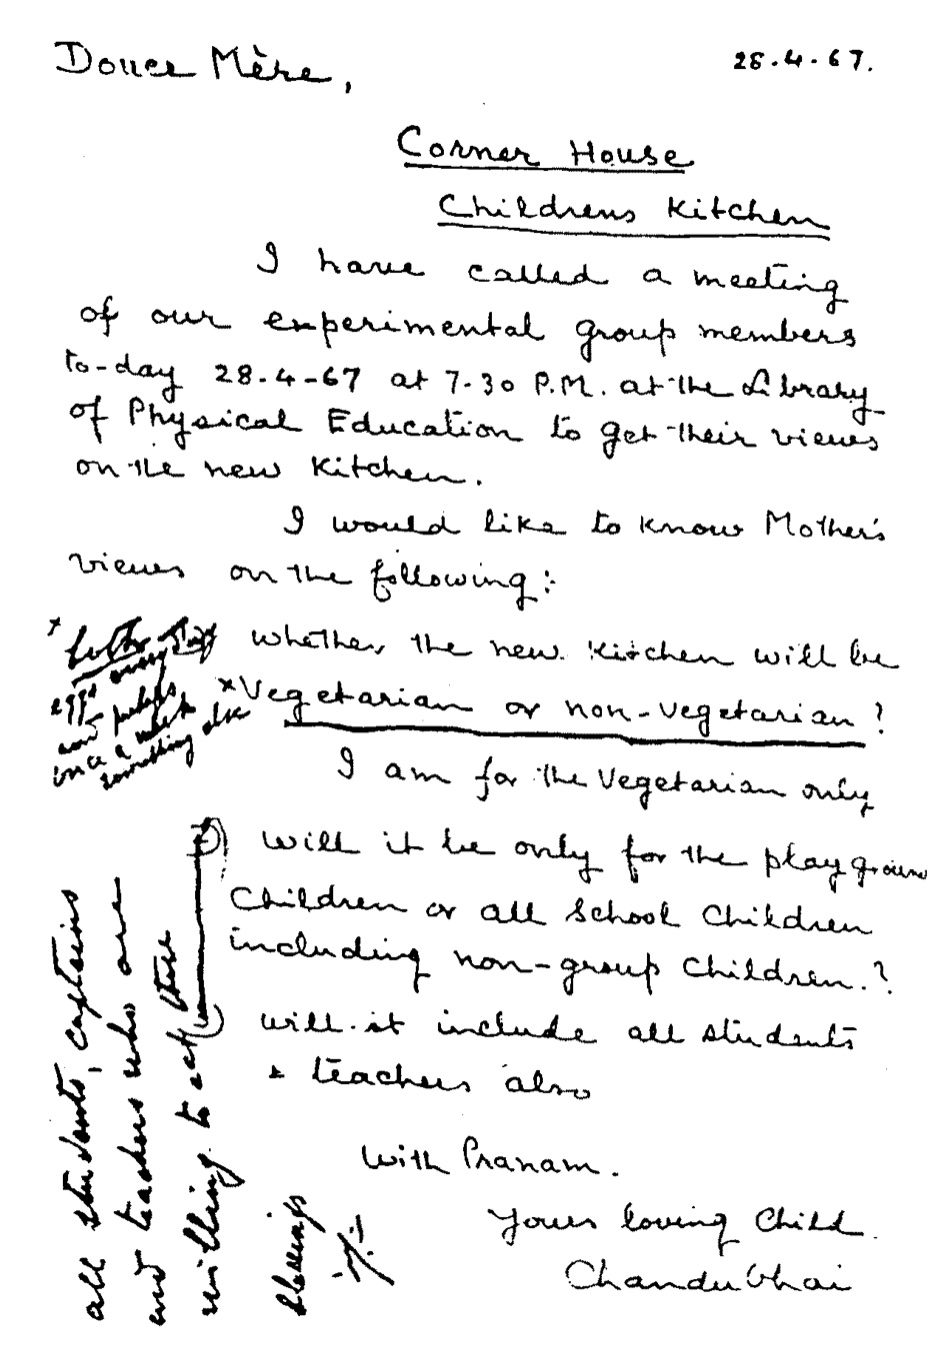 Douce Mère,
28.4.67.
Corner House
Childrens Kitchen
I have called a meeting
of our experimental group members
to-day 28.4-67 at 7.30 P.M. at the Library
of Physical Education to get their views
on the new Kitchen.
I would like to know Mother's
views on the following:
whether the new Kitchen will be
x Vegetarian or non-vegetarian?
x both
eggs every day
and perhaps
once a week
something else
I am for the Vegetarian only
will it be only for the playground
Children or all School Children
including non-group Children.?
will it include all students
& teachers also
all students, captains
and teachers who are
willing to eat there
blessings
With Pranam.
Yours loving Child
Chandubhai